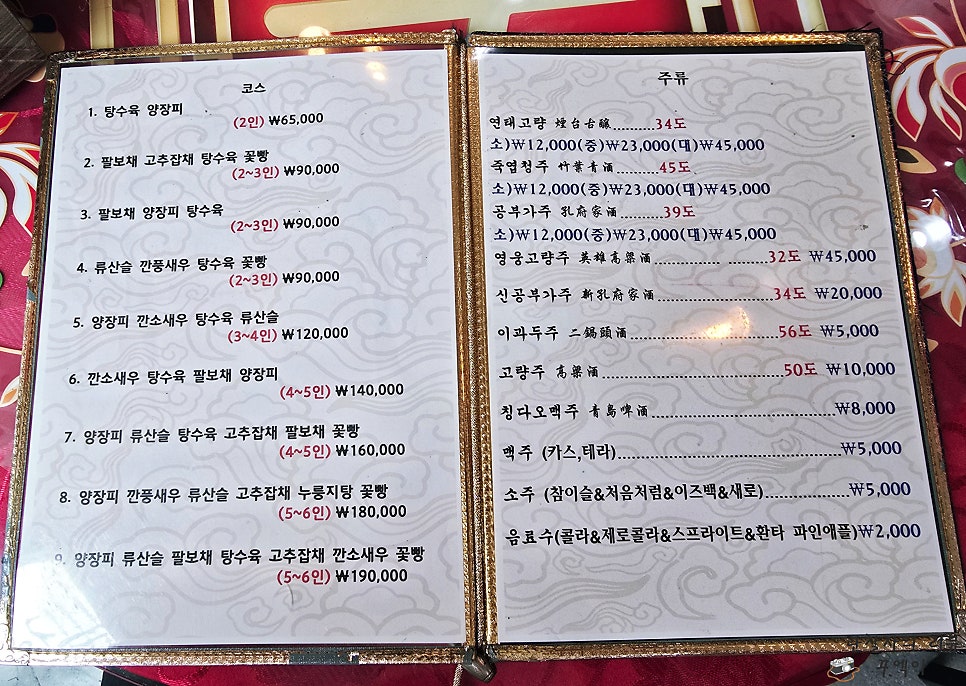 코스
1. 탕수육 양장피
(2인) ₩65,000
2. 팔보채 고추잡채 탕수육 꽃빵
(2~3인) ₩90,000
3. 팔보채 양장피 탕수육
(2~3인) ₩90,000
4. 류산슬 깐풍새우 탕수육 꽃빵
(2~3인) ₩90,000
5. 양장피 깐소새우 탕수육 류산슬
(3~4인) ₩120,000
6. 깐소새우 탕수육 팔보채 양장피
(4~5인) ₩140,000
7. 양장피 류산슬 탕수육 고추잡채 팔보채 꽃빵
(4~5인) ₩160,000
8. 양장피 깐풍새우 류산슬 고추잡채 누룽지탕 꽃빵
(5~6인) ₩180,000
9. 양장피 류산슬 팔보채 탕수육 고추잡채 깐소새우 꽃빵
(5~6인) ₩190,000
주류
연태고량 煙台古釀..........34도
소)₩12,000(중)₩23,000(대)₩45,000
죽엽청주 竹葉青酒..........45도
소)₩12,000(중)₩23,000(대)₩45,000
공부가주 孔府家酒..........39도
소)₩12,000(중)₩23,000(대)₩45,000
영웅고량주 英雄高粱酒.............. ........32도 ₩45,000
신공부가주 新孔府家酒........................34도 ₩20,000
이과두주 二鍋頭酒..............................56도 ₩5,000
고량주 高粱酒.....................................50도 ₩10,000
칭다오맥주 青島啤酒.....................................₩8,000
맥주 (카스,테라).............................................₩5,000
소주 (참이슬&처음처럼&이즈백&새로)................₩5,000
음료수(콜라&제로콜라&스프라이트&환타 파인애플)₩2,000